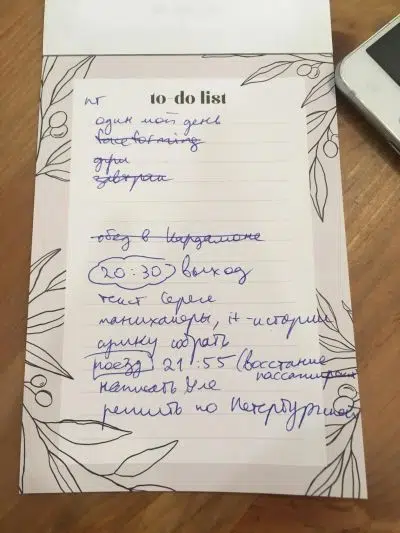 to-do list
пт
один мой день
faceforming
душ
завтрак
обед в Кардамоне
20:30 выход
текст Сереге
, it-истории
сумку собрать
поезд 21:55 (восстание
пассажиров
написать Уле
решить по Петербургской